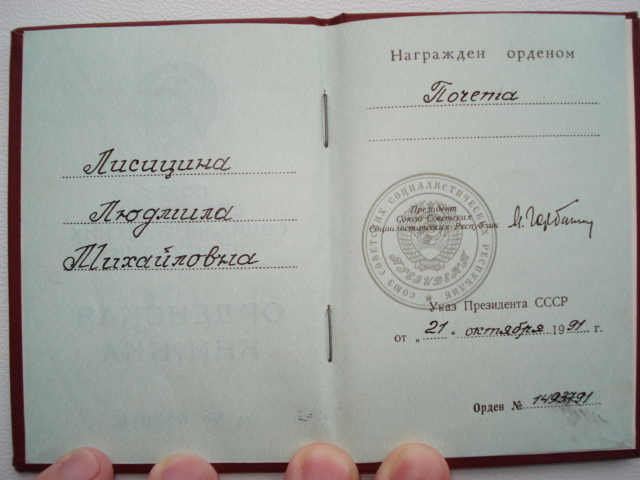 Лисицина
Людмила
Михайловна
Награжден орденом
Почета
Президент
Союза Советских
Социалистических Республик
М. Горбачев
СОЮЗ СОВЕТСКИХ СОЦИАЛИСТИЧЕСКИХ РЕСПУБЛИК
ПРЕЗИДЕНТ
Указ Президента СССР
от „21“ октября 1991 г.
Орден № 1493791